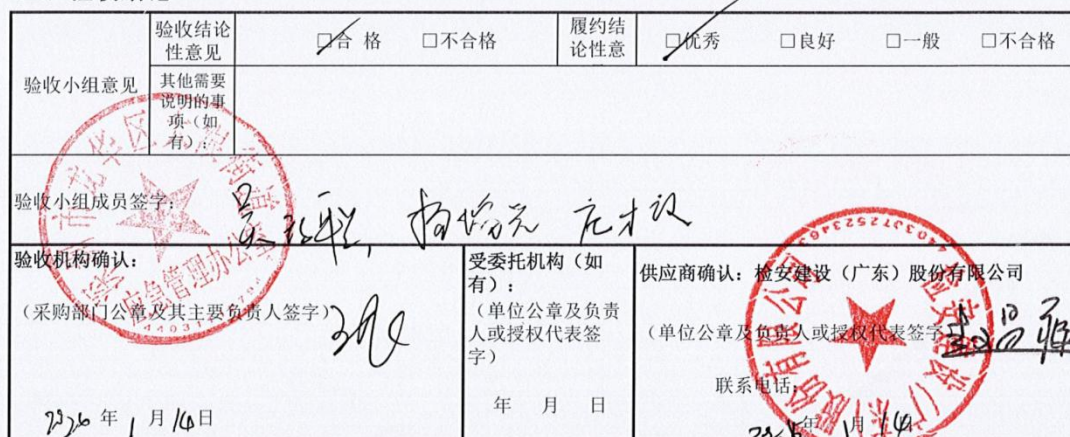 验收小组意见
验收结论
性意见
□合 格 □不合格
履约结
论性意
□优秀 □良好 □一般 □不合格
其他需要
说明的事
项（如
有）：
验收小组成员签字：
验收机构确认：
（采购部门公章及其主要负责人签字）
2026 年 1 月 14日
受委托机构（如
有）：
（单位公章及负责
人或授权代表签
字）
年 月 日
供应商确认：检安建设（广东）股份有限公司
（单位公章及负责人或授权代表签字
联系电话：
2026年 1月 14日